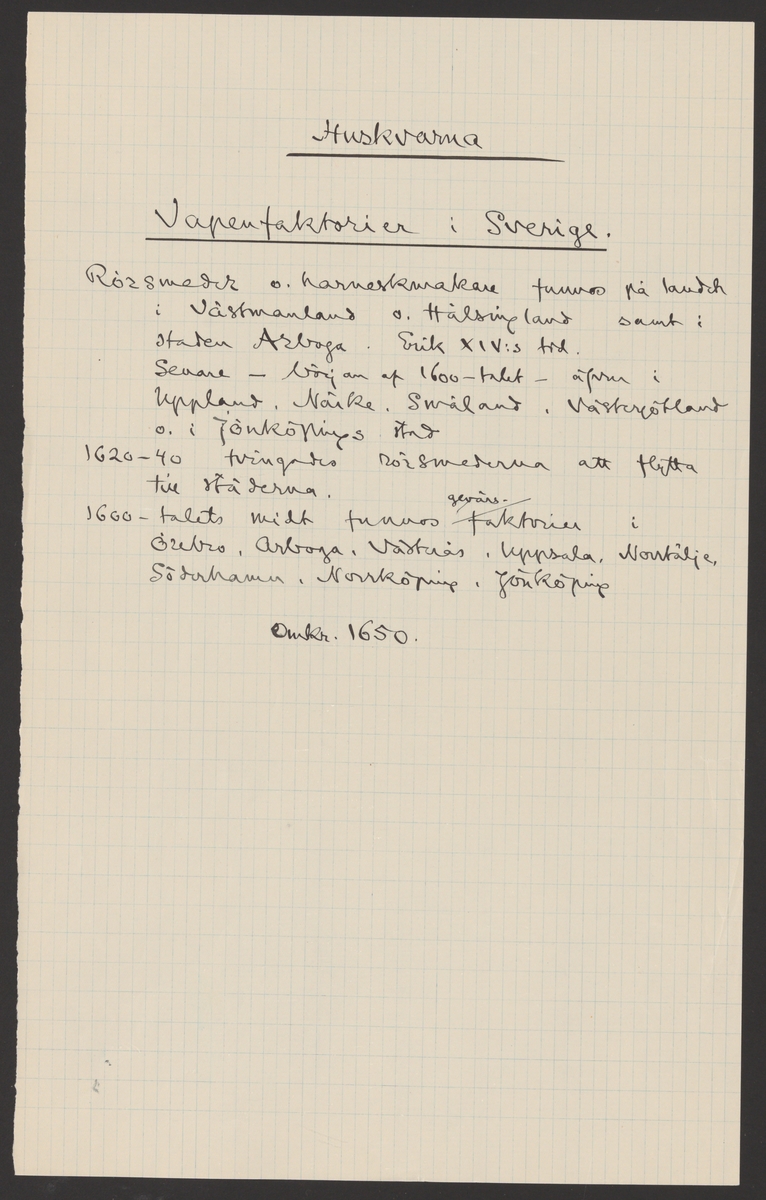 Huskvarna
Vapenfaktorier i Sverige.
Rörsmeder o. harneskmakare funnos på landet
i Västmanland o. Hälsingland samt i
staden Arboga. Erik XIV:s tid.
Senare - början af 1600-talet - äfven i
Uppland, Närke, Småland, Västergötland
o. i Jönköpings stad
1620-40 tvingades rörsmederna att flytta
till städerna.
gevärs-
1600-talets midt funnos faktorier i
Örebro, Arboga, Västerås, Uppsala, Norrtälje,
Söderhamn, Norrköping, Jönköping
Omkr. 1650.